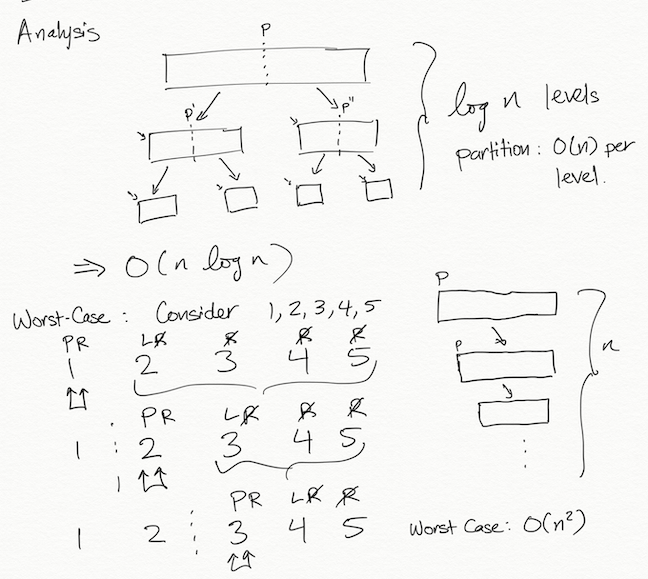 Analysis
P
P' P"
log n levels
partition: O(n) per
level.
⇒ O(n log n)
Worst-Case: Consider 1, 2, 3, 4, 5
PR LR R R R
1 2 3 4 5
PR LR R R
1 2 3 4 5
PR LR R
1 2 3 4 5
P
P
n
Worst Case: O(n²)